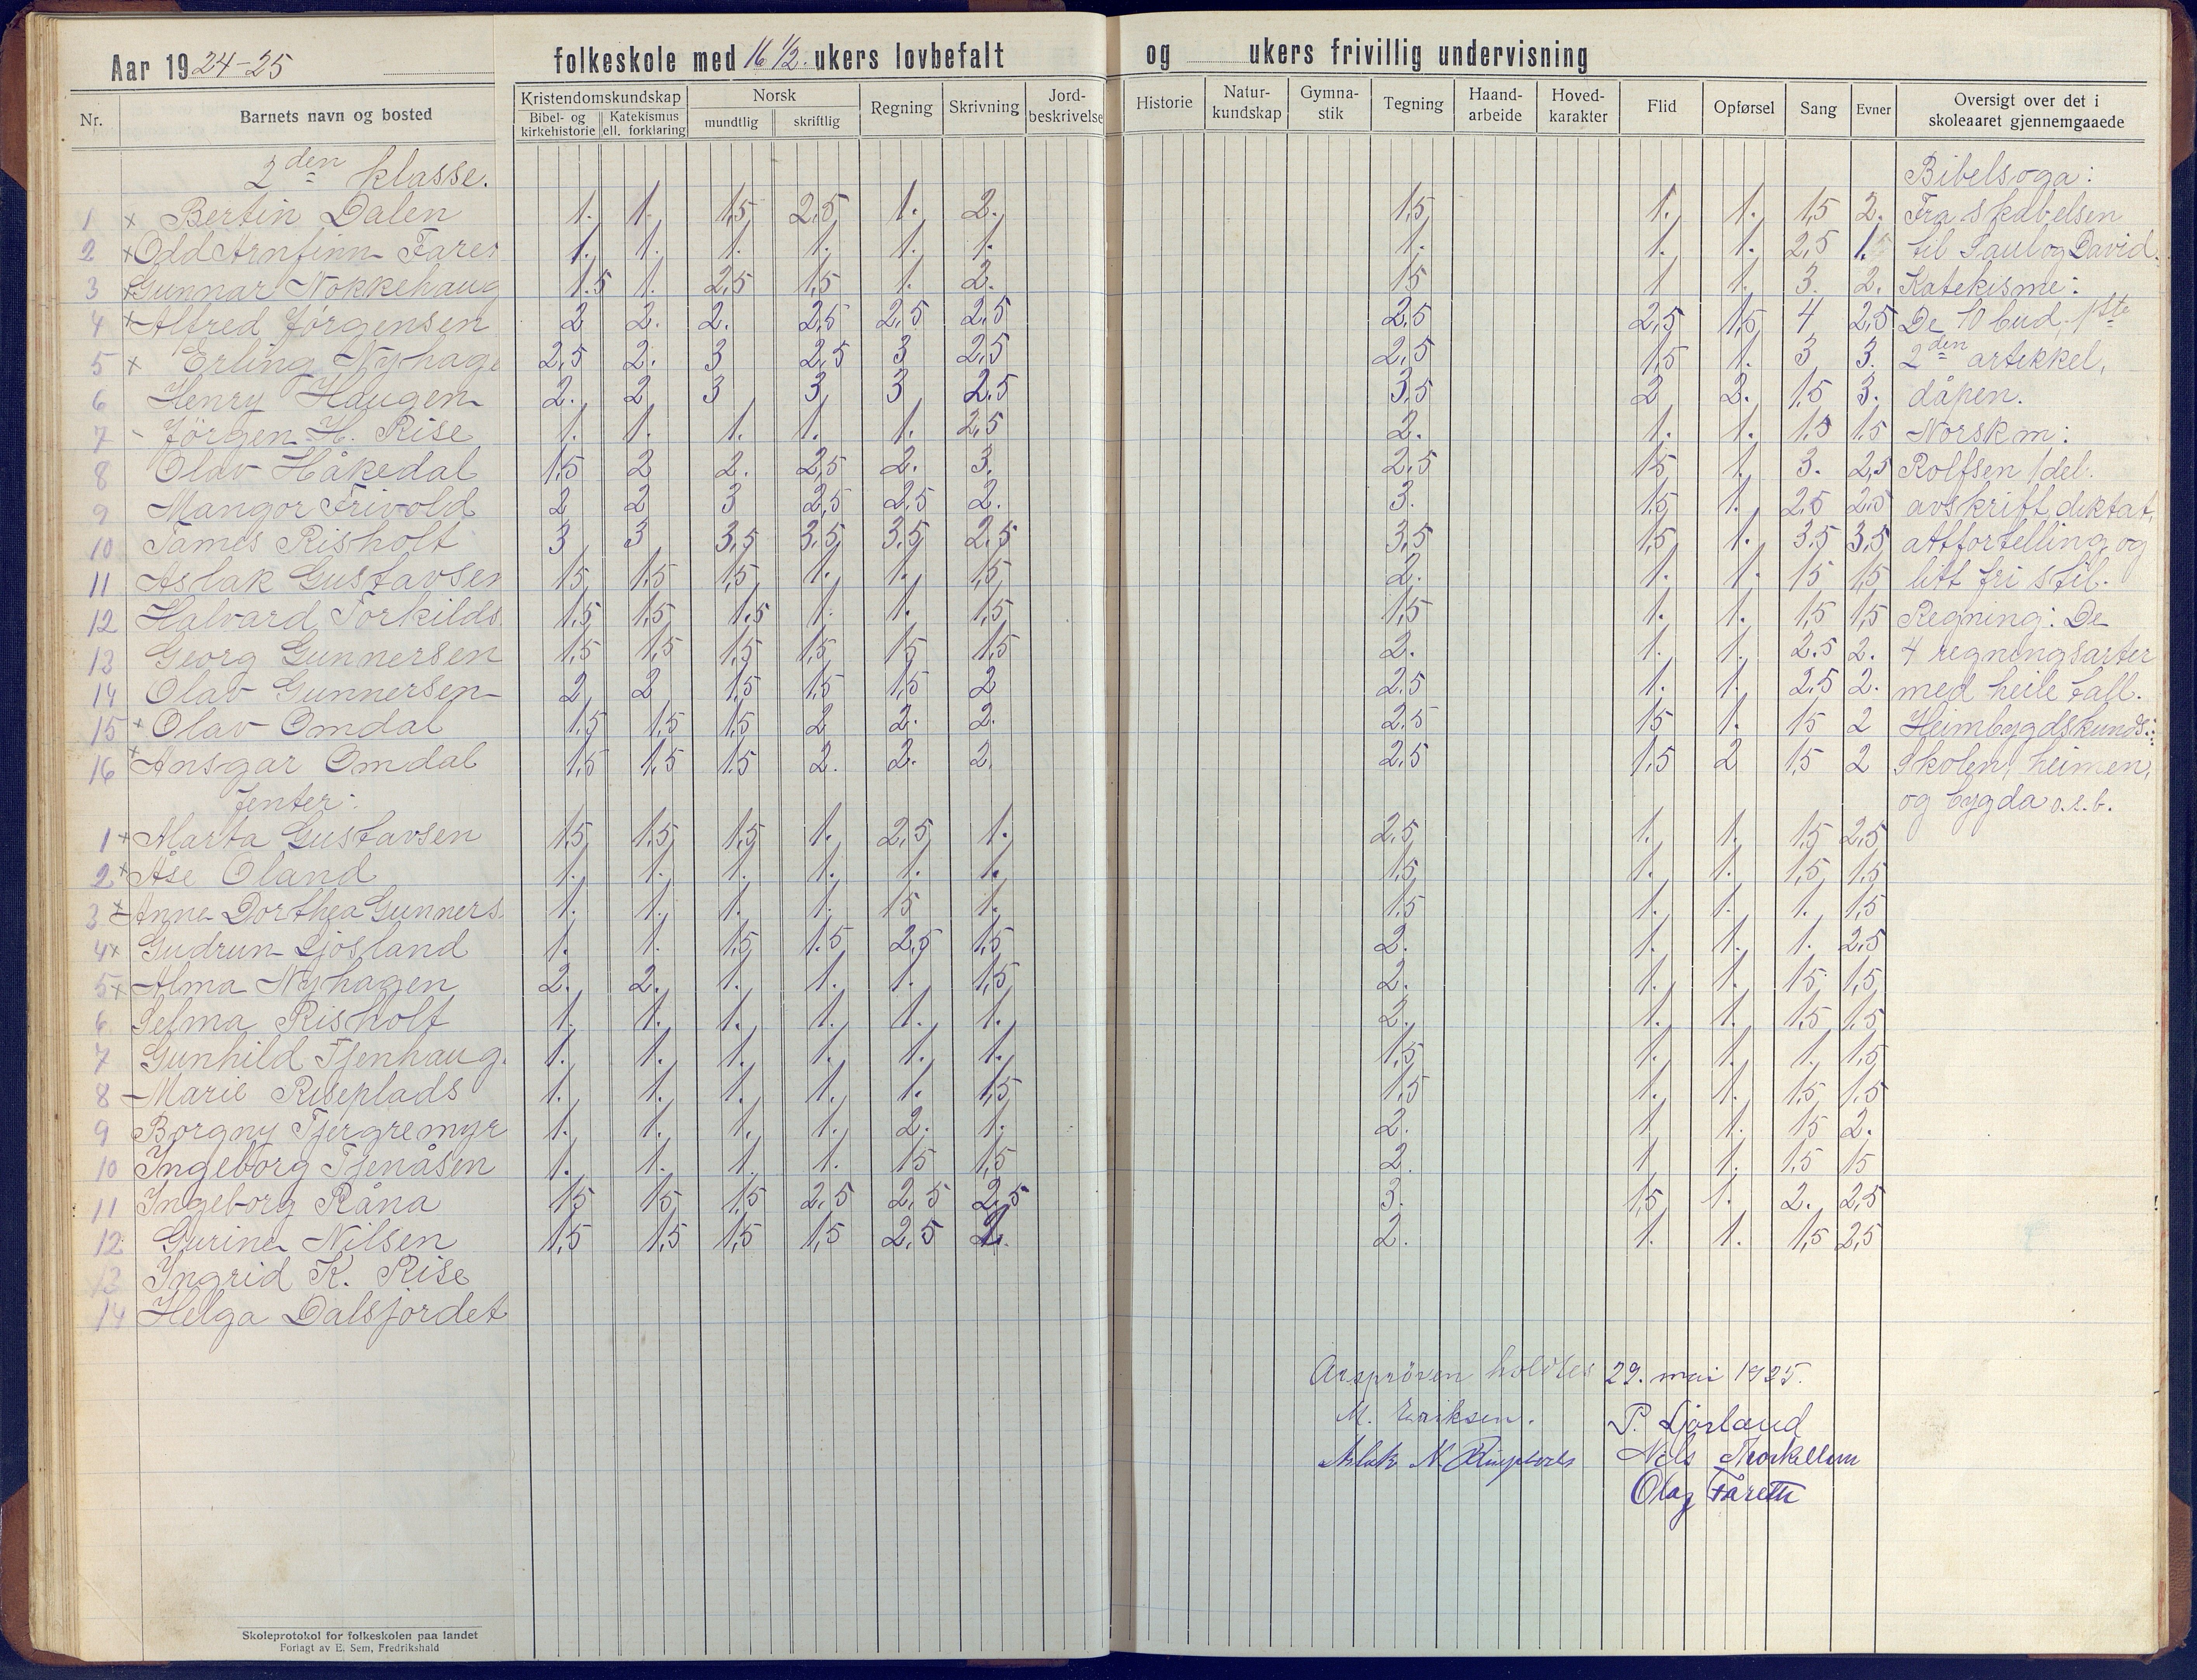 Aar 1924-25 folkeskole med 16 1/2 ukers lovbefalt og ukers frivillig undervisning
Nr. Barnets navn og bosted Kristendomskundskap Bibel- og kirkehistorie Katekismus ell. forklaring Norsk mundtlig skriftlig Regning Skrivning Jord-beskrivelse Historie Natur-kundskap Gymna-stik Tegning Haand-arbeide Hoved-karakter Flid Opførsel Sang Evner Oversigt over det i skoleaaret gjennemgaaede
2den klasse. Bibelsoga:
1 x Bertin Dalen 1. 1. 1,5 2,5 1. 2. 1,5 1. 1. 1,5 2. Fra skabelsen
2 x Odd Arnfinn Fares 1. 1. 1. 1. 1. 1. 1. 1. 1. 2,5 1. til Saul og David.
3 x Gunnar Nokkehaug 1.5 1. 2,5 1,5 1. 2. 1,5 1 1. 3. 2. Katekisme:
4 x Alfred Jörgensen 2 2. 2. 2,5 2,5 2,5 2,5 2,5 1,5 4 2,5 De 10 bud. 1ste
5 x Erling Nyhage 2,5 2. 3 2,5 3 2,5 2,5 1,5 1. 3 3. 2den artikkel,
6 Henry Haugen 2. 2 3 3 3 2.5 3,5 2 2. 1,5 3. dåpen.
7 - Jörgen H. Rise 1. 1. 1. 1. 1. 2,5 2. 1. 1. 1,5 1,5 Norsk m:
8 Olav Håkedal 1,5 2 2. 2,5 2. 3. 2,5 1,5 1. 3. 2,5 Rolfsen 1 del.
9 Mangor Frivold 2 2 3 2,5 2,5 2. 3. 1,5 1. 2,5 2,5 avskrift, diktat,
10 James Risholt 3 3 3,5 3,5 3,5 2,5 3,5 1,5 1. 3.5 3,5 attfortelling og
11 Aslak Gustavsen 1,5 1,5 1,5 1. 1. 1,5 2. 1. 1. 1,5 1,5 litt fri stil.
12 Halvard Torkilds 1,5 1,5 1.5 1. 1. 1,5 1,5 1. 1. 1,5 1,5 Regning: De
13 Georg Gunnersen 1,5 1,5 1,5 1,5 1,5 1,5 2. 1. 1. 2.5 2. 4 regningsarter
14 Olav Gunnersen 2 2 1,5 1,5 1,5 2 2,5 1. 1. 2,5 2. med heile tall.
15 x Olav Omdal 1,5 1,5 1,5 2 2. 2. 2,5 1,5 1. 1,5 2 Heimbygdskunds.:
16 x Ansgar Omdal 1,5 1,5 1,5 2. 2. 2. 2,5 1,5 2 1,5 2 Skolen, heimen,
Jenter: og bygda o.s.b.
1 x Marta Gustavsen 1,5 1,5 1,5 1. 2,5 1. 2,5 1. 1. 1,5 2,5
2 x Åse Öland 1. 1. 1. 1. 1. 1. 1,5 1. 1. 1,5 1,5
3 x Anne Dorthea Gunners. 1. 1. 1. 1. 1,5 1. 1,5 1. 1. 1. 1,5
4 x Gudrun Ljösland 1. 1. 1,5 1.5 2,5 1,5 2. 1. 1. 1. 2,5
5 x Alma Nyhagen 2. 2. 1. 1. 1. 1,5 2. 1. 1. 1,5 1,5
6 Selma Risholt 1. 1. 1. 1. 1. 1. 2. 1. 1. 1,5 1,5
7 Gunhild Tjenhaug. 1. 1. 1. 1. 1. 1. 1,5 1. 1. 1. 1,5
8 Marie Riseplads 1. 1. 1. 1. 1. 1,5 1,5 1. 1. 1,5 1.5
9 Borgny Tjergremyr 1. 1. 1. 1. 2. 1. 2. 1 1. 1,5 2.
10 Ingeborg Tjenåsen 1. 1. 1. 1. 1,5 1,5 2. 1 1. 1,5 1,5
11 Ingeborg Råna 1,5 1,5 1,5 2,5 2,5 2,5 3. 1,5 1. 2. 2,5
12 Gurine Nilsen 1,5 1,5 1,5 1,5 2,5 2. 2. 1. 1. 1,5 2,5
13 Ingrid K. Rise
14 Helga Dalsjordet
Årsprøven holdtes 29. mai 1925.
M. Eriksen. P. Ljosland
Aslak N. Riseplads Nils
Olag Fareth
Skoleprotokol for folkeskolen paa landet
Forlagt av E. Sem, Fredrikshald